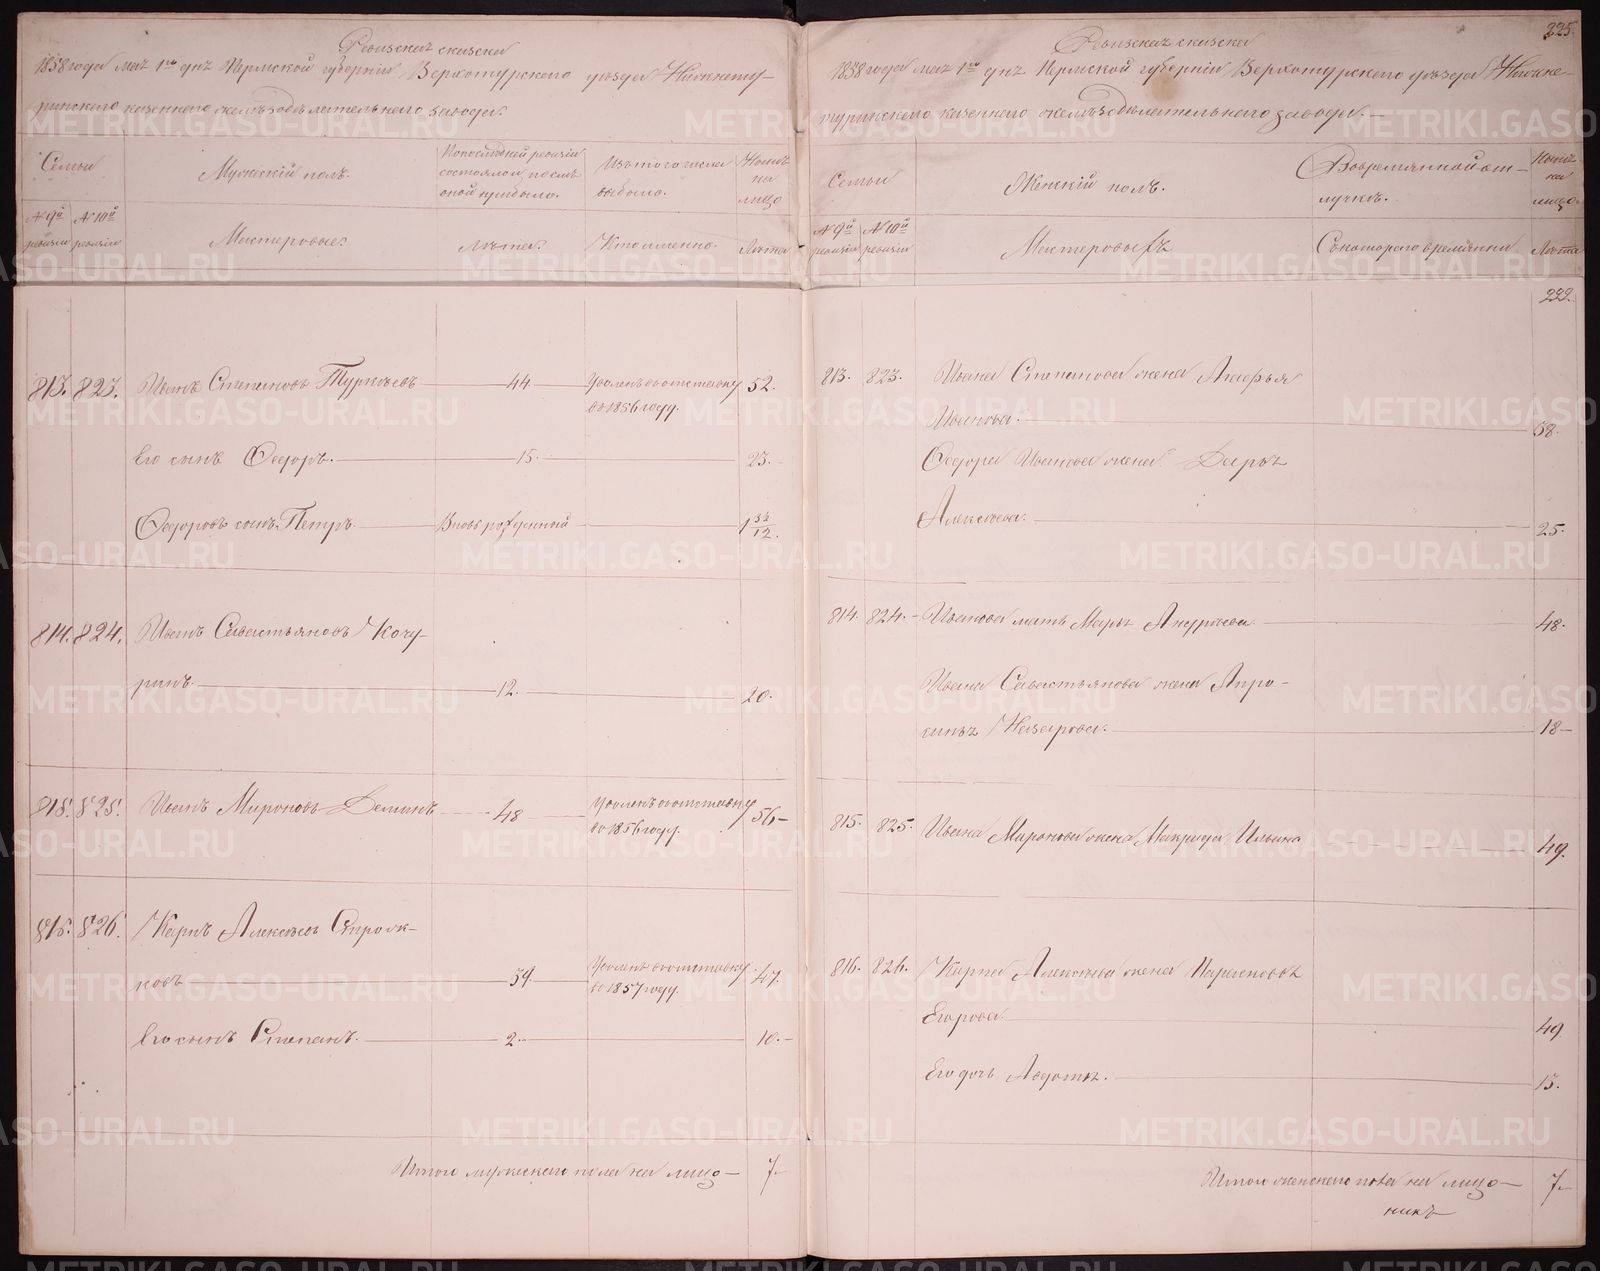 Ревизская сказка
1858 года мая 1го дня Пермской губернии Верхотурского уезда Нижнету-
ринского казеннаго железоделательнаго завода.
Семьи
Мужескій полъ.
По последней ревизіи
состояло и после
оной прибыло.
Изъ того числа
выбыло.
Ныне
на
лицо
№ 9й
ревизіи
№ 10й
ревизіи
Мастеровые.
Лета.
Кто именно.
Лета
813. 823. Иванъ Степановъ Туркеевъ 44 Уволенъ в отставку 52.
в 1856 году.
Его сынъ Федоръ. 15. 23.
Федоровъ сынъ Петръ. Вновь рожденный
814. 824. Иванъ Савастьяновъ Качу-
ринъ. 12. 20.
815. 825. Иванъ Мироновъ Деминъ 48 Уволенъ в отставку 56
в 1856 году.
816. 826. Карпъ Алексеевъ Стрелк-
новъ 39. Уволенъ в отставку 47.
в 1857 году.
Его сынъ Степанъ. 2. 10.
Итого мужескаго пола на лицо 7
225.
Ревизская сказка
1858 года мая 1го дня Пермской губерніи Верхотурского уезда Нижне-
туринскаго казеннаго железоделательнаго завода.
Семьи
Женскій полъ.
Во временной от-
лучке.
Ныне
на
лицо.
№ 9й
ревизіи
№ 10й
ревизіи
Мастеровыхъ
Съ котораго времяни
Лета
232.
813. 823. Ивана Степанова жена Агафья
Иванова. 58.
Федора Иванова жена Дарья
Алексеева. 25.
814. 824. Иванова мать Марья Андреева 48.
Ивана Савастьянова жена Апро-
синья Назарова. 18
815. 825. Ивана Миронова жена Макрида Ильина 49.
816. 826. Карпа Алексеева жена Парасковья
Егорова 49
Его дочь Авдотья. 13.
Итого женскаго пола на лицо 7